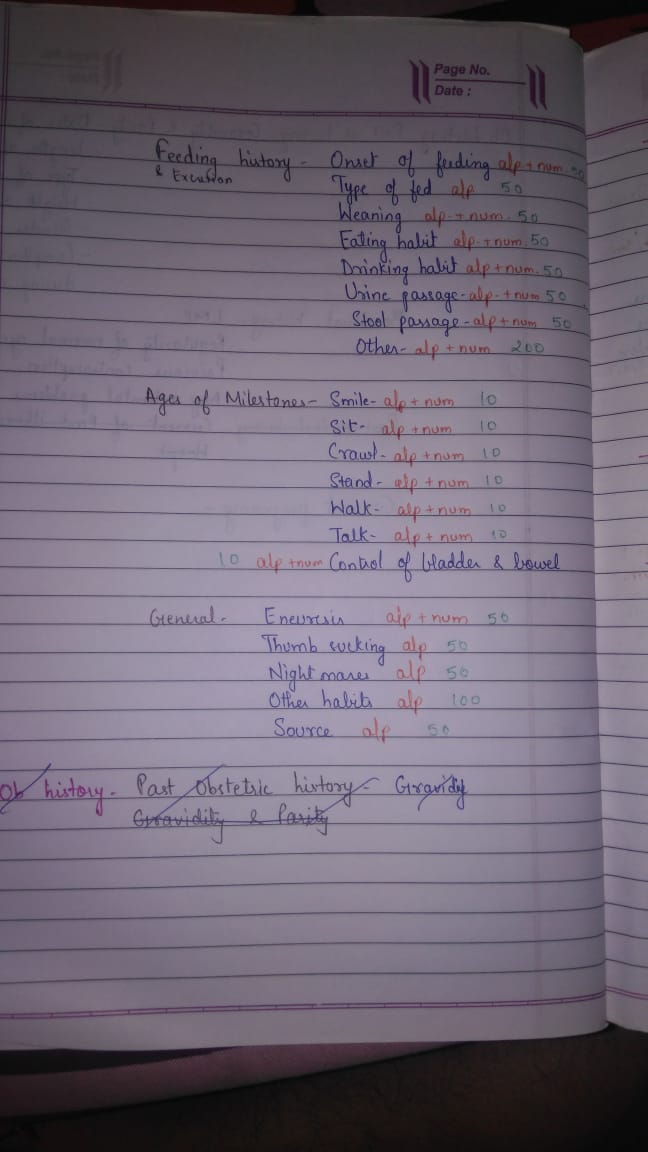 Page No.
Date :
Feeding history - Onset of feeding alp + num. 50
& Excretion Type of fed alp 50
Weaning alp + num. 50
Eating habit alp + num. 50
Drinking habit alp + num. 50
Urine passage - alp + num 50
Stool passage - alp + num 50
Other - alp + num 200
Ages of Milestones - Smile - alp + num 10
Sit - alp + num 10
Crawl - alp + num 10
Stand - alp + num 10
Walk - alp + num 10
Talk - alp + num 10
10 alp + num Control of bladder & bowel
General - Eneuresis alp + num 50
Thumb sucking alp 50
Night mares alp 50
Other habits alp 100
Source alp 50
Ob history - Past Obstetric history - Gravidity
Gravidity & Parity